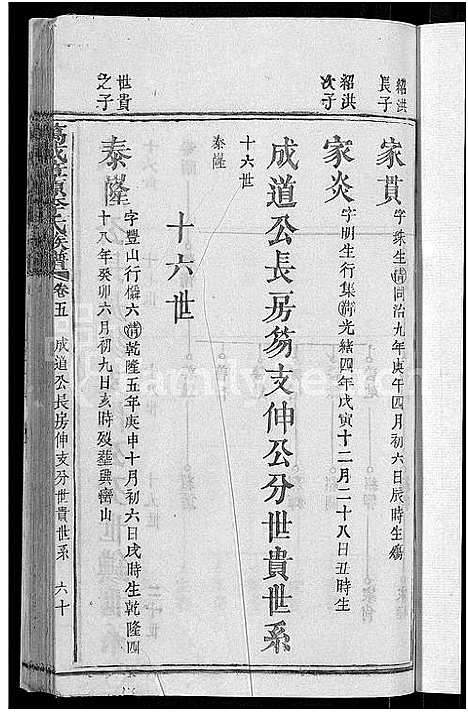 紹洪長子
家貫
字珠生清同治九年庚午四月初六日辰時生殤
紹洪次子
家炎
字明生行集清光緒四年戊寅十二月二十八日丑時生
成道公長房芴支伸公分世貴世系
十六世
泰隆
十六世
世貴之子
泰隆
字豐山行僯六清乾隆五年庚申十月初六日戌時生乾隆四
十八年癸卯六月初九日亥時歿葬
山
氏族譜
卷五
成道公長房伸支分世貴世系
六十